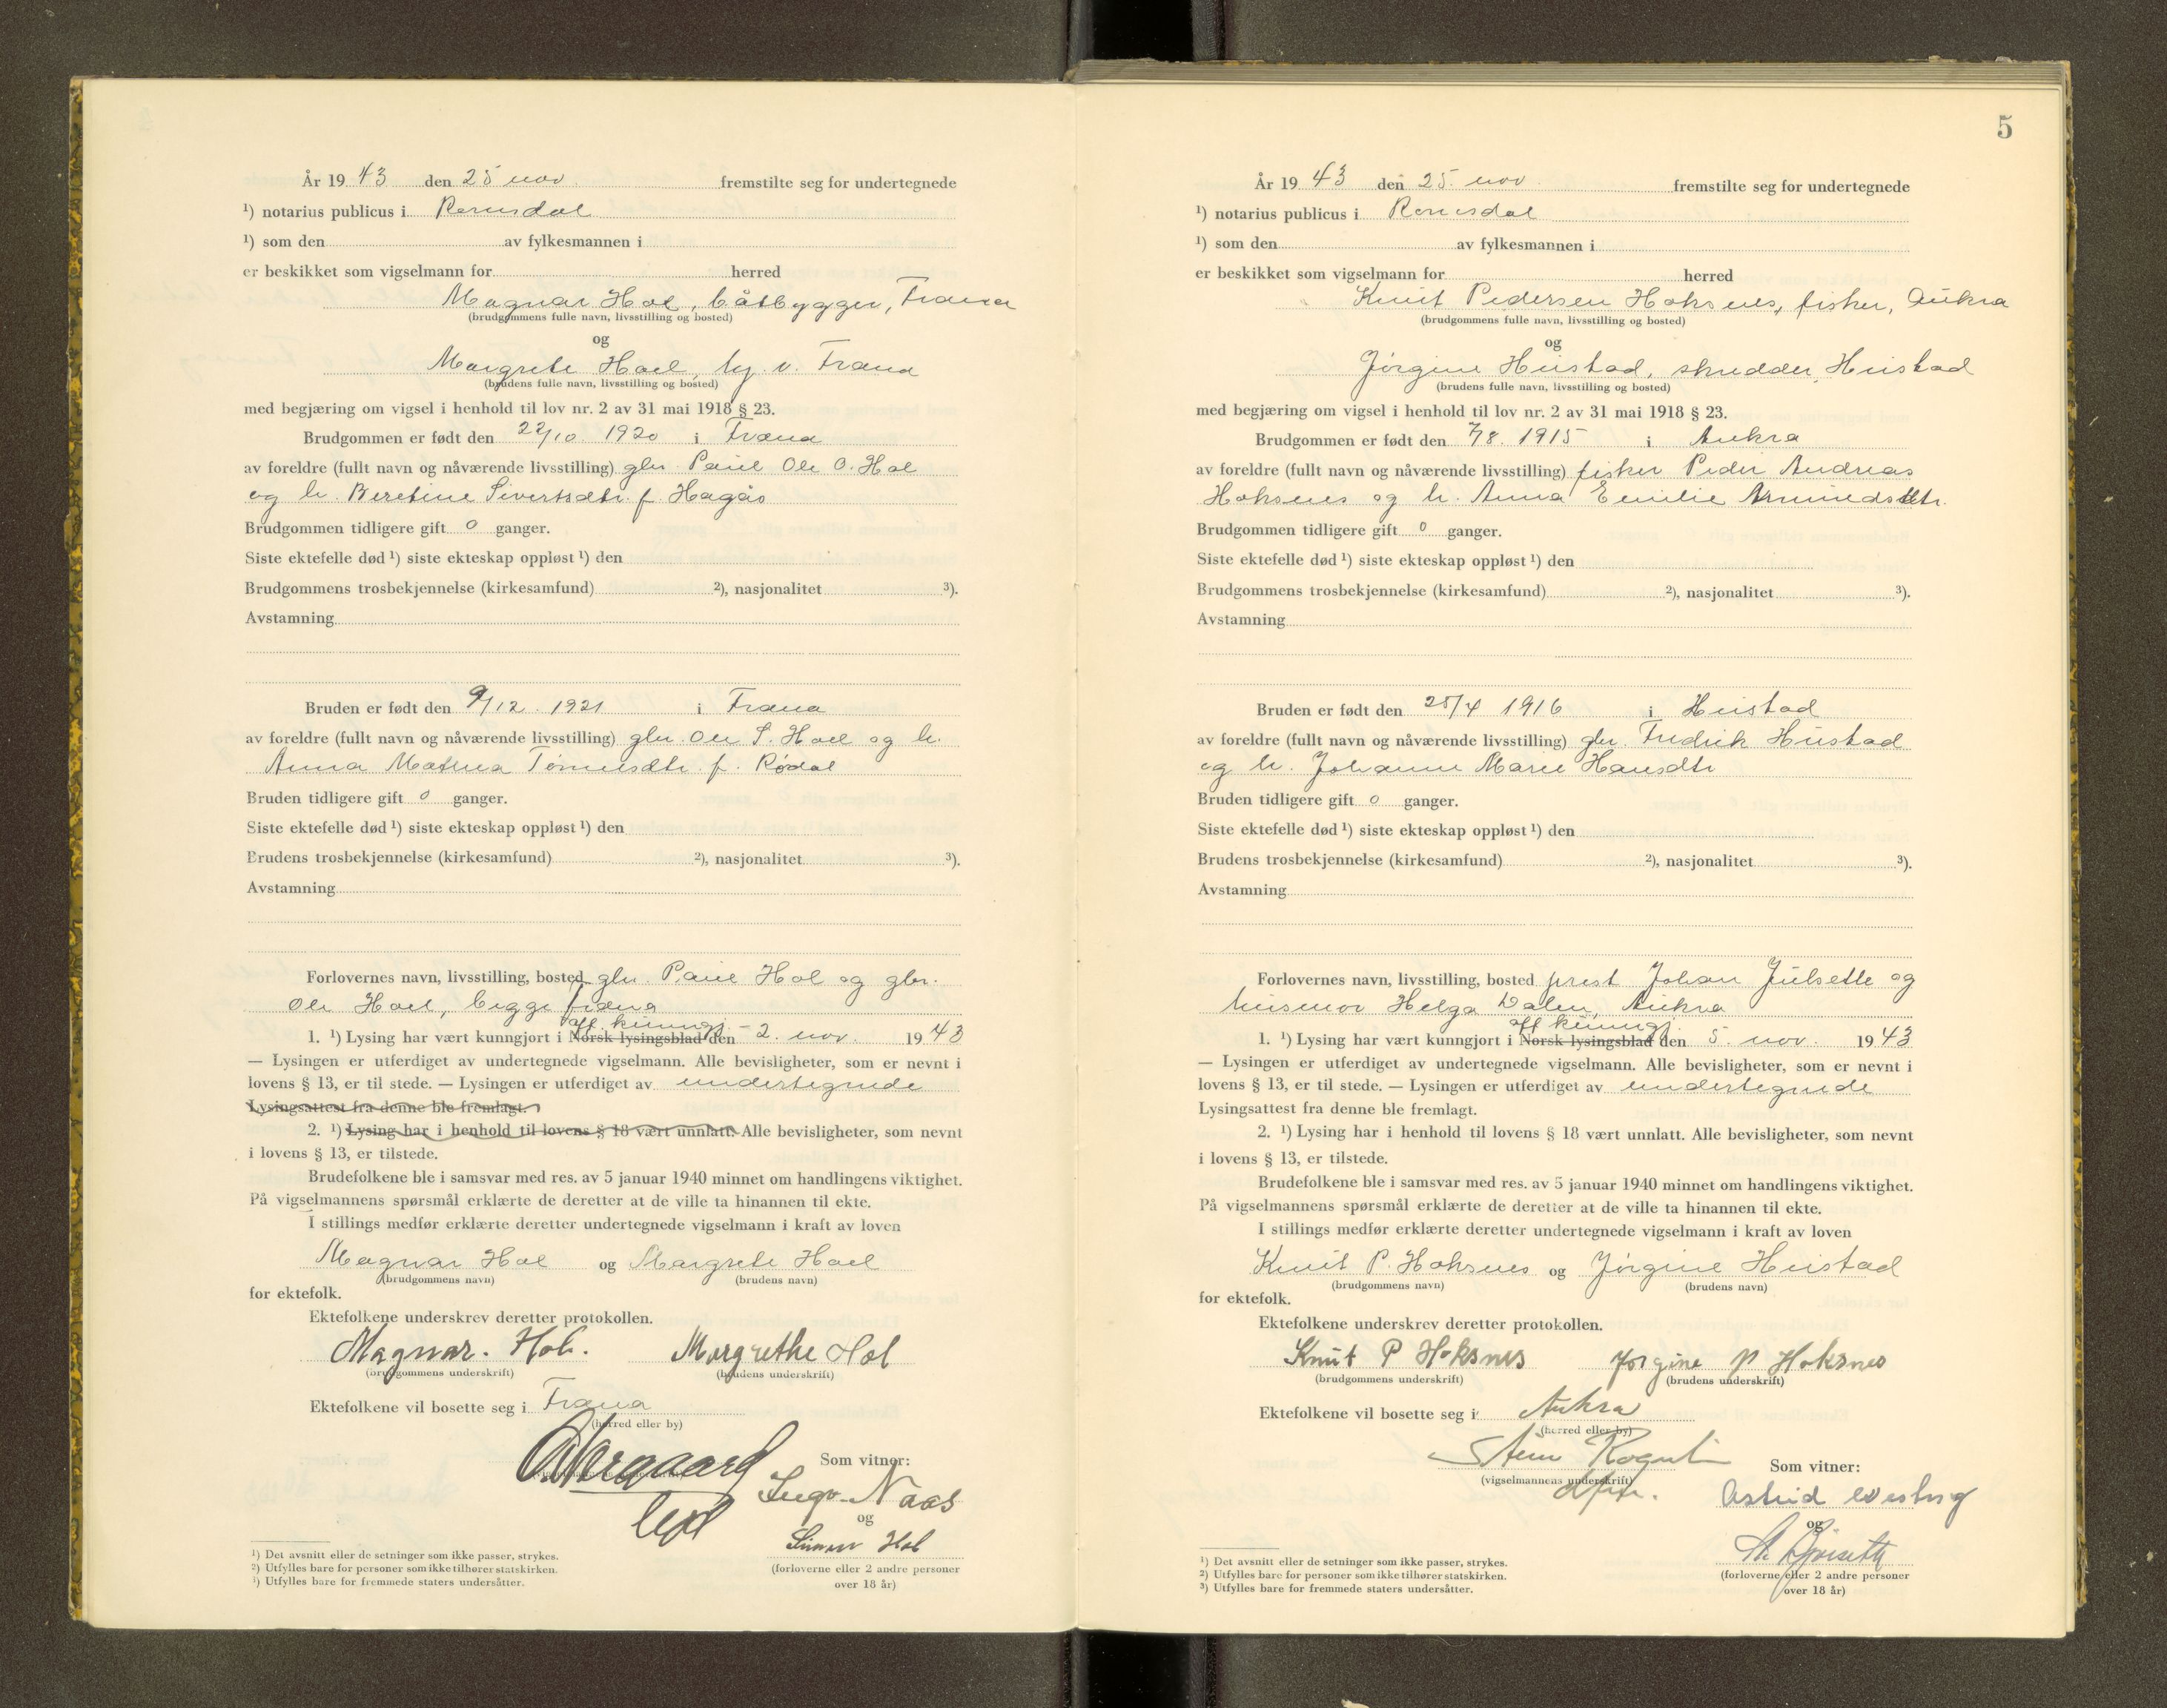 År 19 43 den 25 nov. fremstilte seg for undertegnede
¹) notarius publicus i Romsdal
¹) som den av fylkesmannen i
er beskikket som vigselmann for herred
Magnar Hol, båtbygger, Fræna
(brudgommens fulle navn, livsstilling og bosted)
og
Margrete Hoel, hj. v. Fræna
(brudens fulle navn, livsstilling og bosted)
med begjæring om vigsel i henhold til lov nr. 2 av 31 mai 1918 § 23.
Brudgommen er født den 22/10 1920 i Fræna
av foreldre (fullt navn og nåværende livsstilling) gbr. Paul Ole O. Hol
og h. Beretine Sivertsdtr. f. Hagås
Brudgommen tidligere gift 0 ganger.
Siste ektefelle død ¹) siste ekteskap oppløst ¹) den
Brudgommens trosbekjennelse (kirkesamfund) ²), nasjonalitet ³).
Avstamning
Bruden er født den 9/12 1921 i Fræna
av foreldre (fullt navn og nåværende livsstilling) gbr. Ole S. Hoel og h.
Anna Mathea Tønnesdtr. f. Rødal
Bruden tidligere gift 0 ganger.
Siste ektefelle død ¹) siste ekteskap oppløst ¹) den
Brudens trosbekjennelse (kirkesamfund) ²), nasjonalitet ³).
Avstamning
Forlovernes navn, livsstilling, bosted gbr. Paul Hol og gbr.
Ole Hoel, begge Fræna
off. kunngj.
1. ¹) Lysing har vært kunngjort i Norsk lysingsblad den 2. nov. 19 43
— Lysingen er utferdiget av undertegnede vigselmann. Alle bevisligheter, som er nevnt i
lovens § 13, er til stede. — Lysingen er utferdiget av undertegnede
Lysingsattest fra denne ble fremlagt.
2. ¹) Lysing har i henhold til lovens § 18 vært unnlatt. Alle bevisligheter, som nevnt
i lovens § 13, er tilstede.
Brudefolkene ble i samsvar med res. av 5 januar 1940 minnet om handlingens viktighet.
På vigselmannens spørsmål erklærte de deretter at de ville ta hinannen til ekte.
I stillings medfør erklærte deretter undertegnede vigselmann i kraft av loven
Magnar Hol og Margrete Hoel
(brudgommens navn) (brudens navn)
for ektefolk.
Ektefolkene underskrev deretter protokollen.
Magnar. Hol. Margrethe Hol
(brudgommens underskrift) (brudens underskrift)
Ektefolkene vil bosette seg i Fræna
(herred eller by)
Som vitner:
Naas
og
Simon Hol
(forloverne eller 2 andre personer
over 18 år)
¹) Det avsnitt eller de setninger som ikke passer, strykes.
²) Utfylles bare for personer som ikke tilhører statskirken.
³) Utfylles bare for fremmede staters undersåtter.
5
År 19 43 den 25. nov. fremstilte seg for undertegnede
¹) notarius publicus i Romsdal
¹) som den av fylkesmannen i
er beskikket som vigselmann for herred
Knut Pedersen Hoksnes, fisker, Aukra
(brudgommens fulle navn, livsstilling og bosted)
og
Jørgine Hustad, skredder, Hustad
(brudens fulle navn, livsstilling og bosted)
med begjæring om vigsel i henhold til lov nr. 2 av 31 mai 1918 § 23.
Brudgommen er født den 7/8. 1915 i Aukra
av foreldre (fullt navn og nåværende livsstilling) fisker Peder Andreas
Hoksnes og h. Anna Emilie Amundsdtr.
Brudgommen tidligere gift 0 ganger.
Siste ektefelle død ¹) siste ekteskap oppløst ¹) den
Brudgommens trosbekjennelse (kirkesamfund) ²), nasjonalitet ³).
Avstamning
Bruden er født den 25/4 1916 i Hustad
av foreldre (fullt navn og nåværende livsstilling) gbr. Fredrik Hustad
og h. Johanne Marie Hansdtr
Bruden tidligere gift 0 ganger.
Siste ektefelle død ¹) siste ekteskap oppløst ¹) den
Brudens trosbekjennelse (kirkesamfund) ²), nasjonalitet ³).
Avstamning
Forlovernes navn, livsstilling, bosted prest Johan Julsette og
husmor Helga Dalen, Aukra
off kunngj.
1. ¹) Lysing har vært kunngjort i Norsk lysingsblad den 5. nov. 19 43
— Lysingen er utferdiget av undertegnede vigselmann. Alle bevisligheter, som er nevnt i
lovens § 13, er til stede. — Lysingen er utferdiget av undertegnede
Lysingsattest fra denne ble fremlagt.
2. ¹) Lysing har i henhold til lovens § 18 vært unnlatt. Alle bevisligheter, som nevnt
i lovens § 13, er tilstede.
Brudefolkene ble i samsvar med res. av 5 januar 1940 minnet om handlingens viktighet.
På vigselmannens spørsmål erklærte de deretter at de ville ta hinannen til ekte.
I stillings medfør erklærte deretter undertegnede vigselmann i kraft av loven
Knut P. Hoksnes og Jørgine Hustad
(brudgommens navn) (brudens navn)
for ektefolk.
Ektefolkene underskrev deretter protokollen.
Knut P Hoksnes Jørgine P Hoksnes
(brudgommens underskrift) (brudens underskrift)
Ektefolkene vil bosette seg i Aukra
(herred eller by)
(vigselmannens underskrift)
Som vitner:
Astrid
og
(forloverne eller 2 andre personer
over 18 år)
¹) Det avsnitt eller de setninger som ikke passer, strykes.
²) Utfylles bare for personer som ikke tilhører statskirken.
³) Utfylles bare for fremmede staters undersåtter.